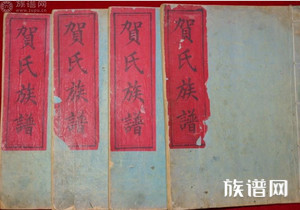 族谱网
賀氏族譜
賀氏族譜
賀氏族譜
賀氏族譜
族谱网